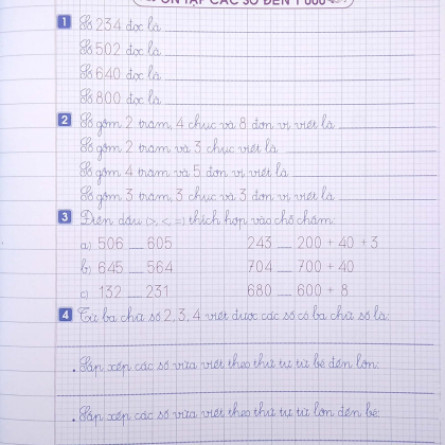 ÔN TẬP CÁC SỐ ĐẾN 1 000
1 Số 234 đọc là
Số 502 đọc là
Số 640 đọc là
Số 800 đọc là
2 Số gồm 2 trăm, 4 chục và 8 đơn vị viết là
Số gồm 2 trăm và 3 chục viết là
Số gồm 4 trăm và 5 đơn vị viết là
Số gồm 3 trăm, 3 chục và 3 đơn vị viết là
3 Điền dấu (>, <, =) thích hợp vào chỗ chấm:
a) 506 __ 605 243 __ 200 + 40 + 3
b) 645 __ 564 704 __ 700 + 40
c) 132 __ 231 680 __ 600 + 8
4 . Từ ba chữ số 2, 3, 4 viết được các số có ba chữ số là:
. Sắp xếp các số vừa viết theo thứ tự từ bé đến lớn:
. Sắp xếp các số vừa viết theo thứ tự từ lớn đến bé: